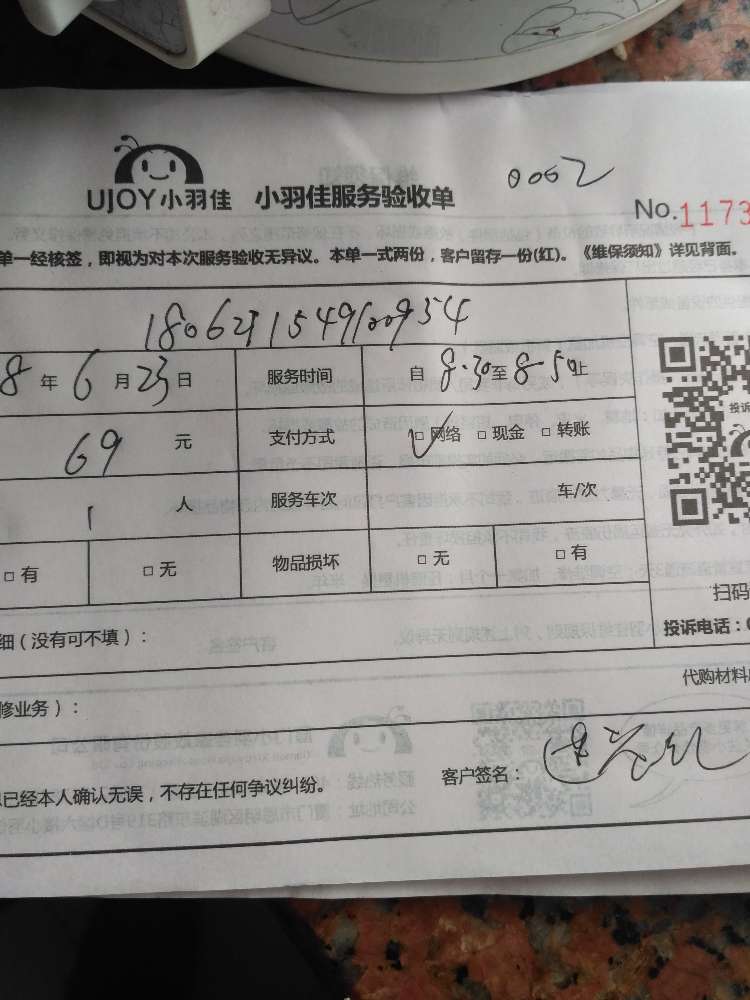 0002
UJOY小羽佳 小羽佳服务验收单
No.1173
单一经核签，即视为对本次服务验收无异议。本单一式两份，客户留存一份(红)。《维保须知》详见背面。
8 年 6 月 23 日 服务时间 自 8.30 至 8-50 止
69 元 支付方式 ✓ □ 网络 □ 现金 □ 转账
1 人 服务车次 车/次
□ 有 □ 无 物品损坏 □ 无 □ 有
投诉
扫码
细（没有可不填）：
投诉电话：0
代购材料
修业务）：
已经本人确认无误，不存在任何争议纠纷。 客户签名：